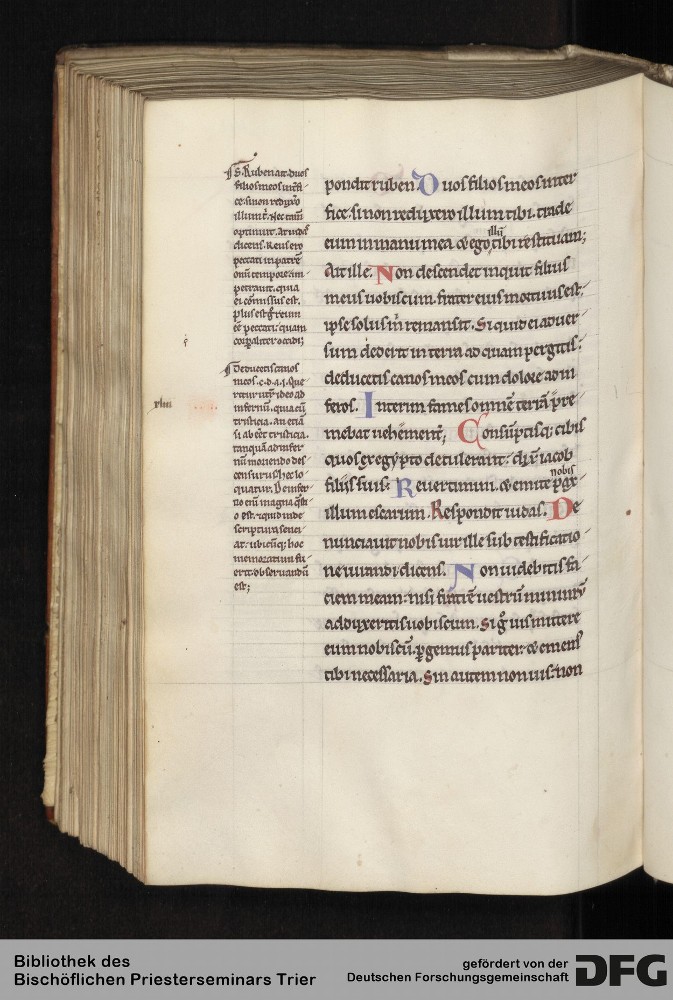 S. Ruben ait. duos
filios meos interfi-
ce. si non reduxero
illum t. Nec tamen
optinuit. At iudas
dicens. Reus ero
peccati in patrem
omni tempore im-
petravit. quia
ei commissus est.
plus est g reum
ee peccati. quam
corporaliter occidi;
De ducetis canos
meos. c. d. a. i. Que
ritur utrum ideo ad
infernum. quia cum
tristicia. an etiam
si abeet tristicia.
tanquam ad infer
num moriendo des-
censurus hec lo
quatur. De infer
no enim magna questi
o est. quid inde
scriptura senci
at. ubicunque hoc
memoratum fu-
erit observandum
est;
xliii
pondit ruben. Duos filios meos inter
fice. si non reduxero illum tibi. trade
illum
eum in manu mea et ego tibi restituam;
At ille. Non descendet inquit filius
meus uobiscum. frater eius mortuus est.
ipse solus m remansit. Si quid ei aduer
sum dederit in terra ad quam pergitis.
deducetis canos meos cum dolore ad in
feros. Interim fames omnē terrā pre
mebat uehēment; Consūptisq; cibis
quos ex egypto detulerant. dix iacob
filiis suis. Reuertimini. et emite
nobis
illum escarum. Respondit iudas. De
nunciauit nobis uir ille sub testificatio
ne iurandi dicens. Non uidebitis fa
ciem meam. nisi fratrē uestrū minimū
adduxeritis uobiscum. Si g uis mittere
eum nobiscū. pgemus pariter. et ememꝰ
tibi necessaria. Sin autem non uis. non
Bibliothek des
Bischöflichen Priesterseminars Trier
gefördert von der
Deutschen Forschungsgemeinschaft
DFG